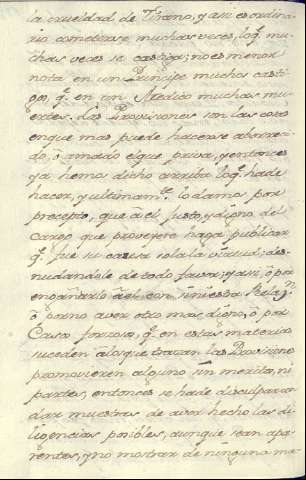 la crueldad de Tirano, y asi es ordina-
rio cometerse muchas veces, lo q.e mu-
chas veces se castiga; no es menor
nota en un Principe muchos casti-
gos, q.e en un Medico muchas mu-
ertes. Las Provisiones son las cosas
en que mas puede hacerse aborreci-
do, ò amado el que priva, y entonces
ya hemos dicho arriba lo q.e ha de
hacer, y ultimam.te lo damos por
precepto, que à el justo, y digno de
cargo que proveyere haga publicar
q.e fue su causa sola la virtud; des-
nudandole de todo favor; y asi, ò por
engañarlo con siniestra Relaz.n
ò por no aver otro mas digno, ò por
Caso forzoso, q.e en estas materias
suceden à los que tratan las Provisiones
promovieren alguno sin merito, ni
partes, entonces se ha de disculpar con
dar muestras de aver hecho las di-
ligencias posibles, aunque sean apa-
rentes, y no mostrar de ninguna ma-